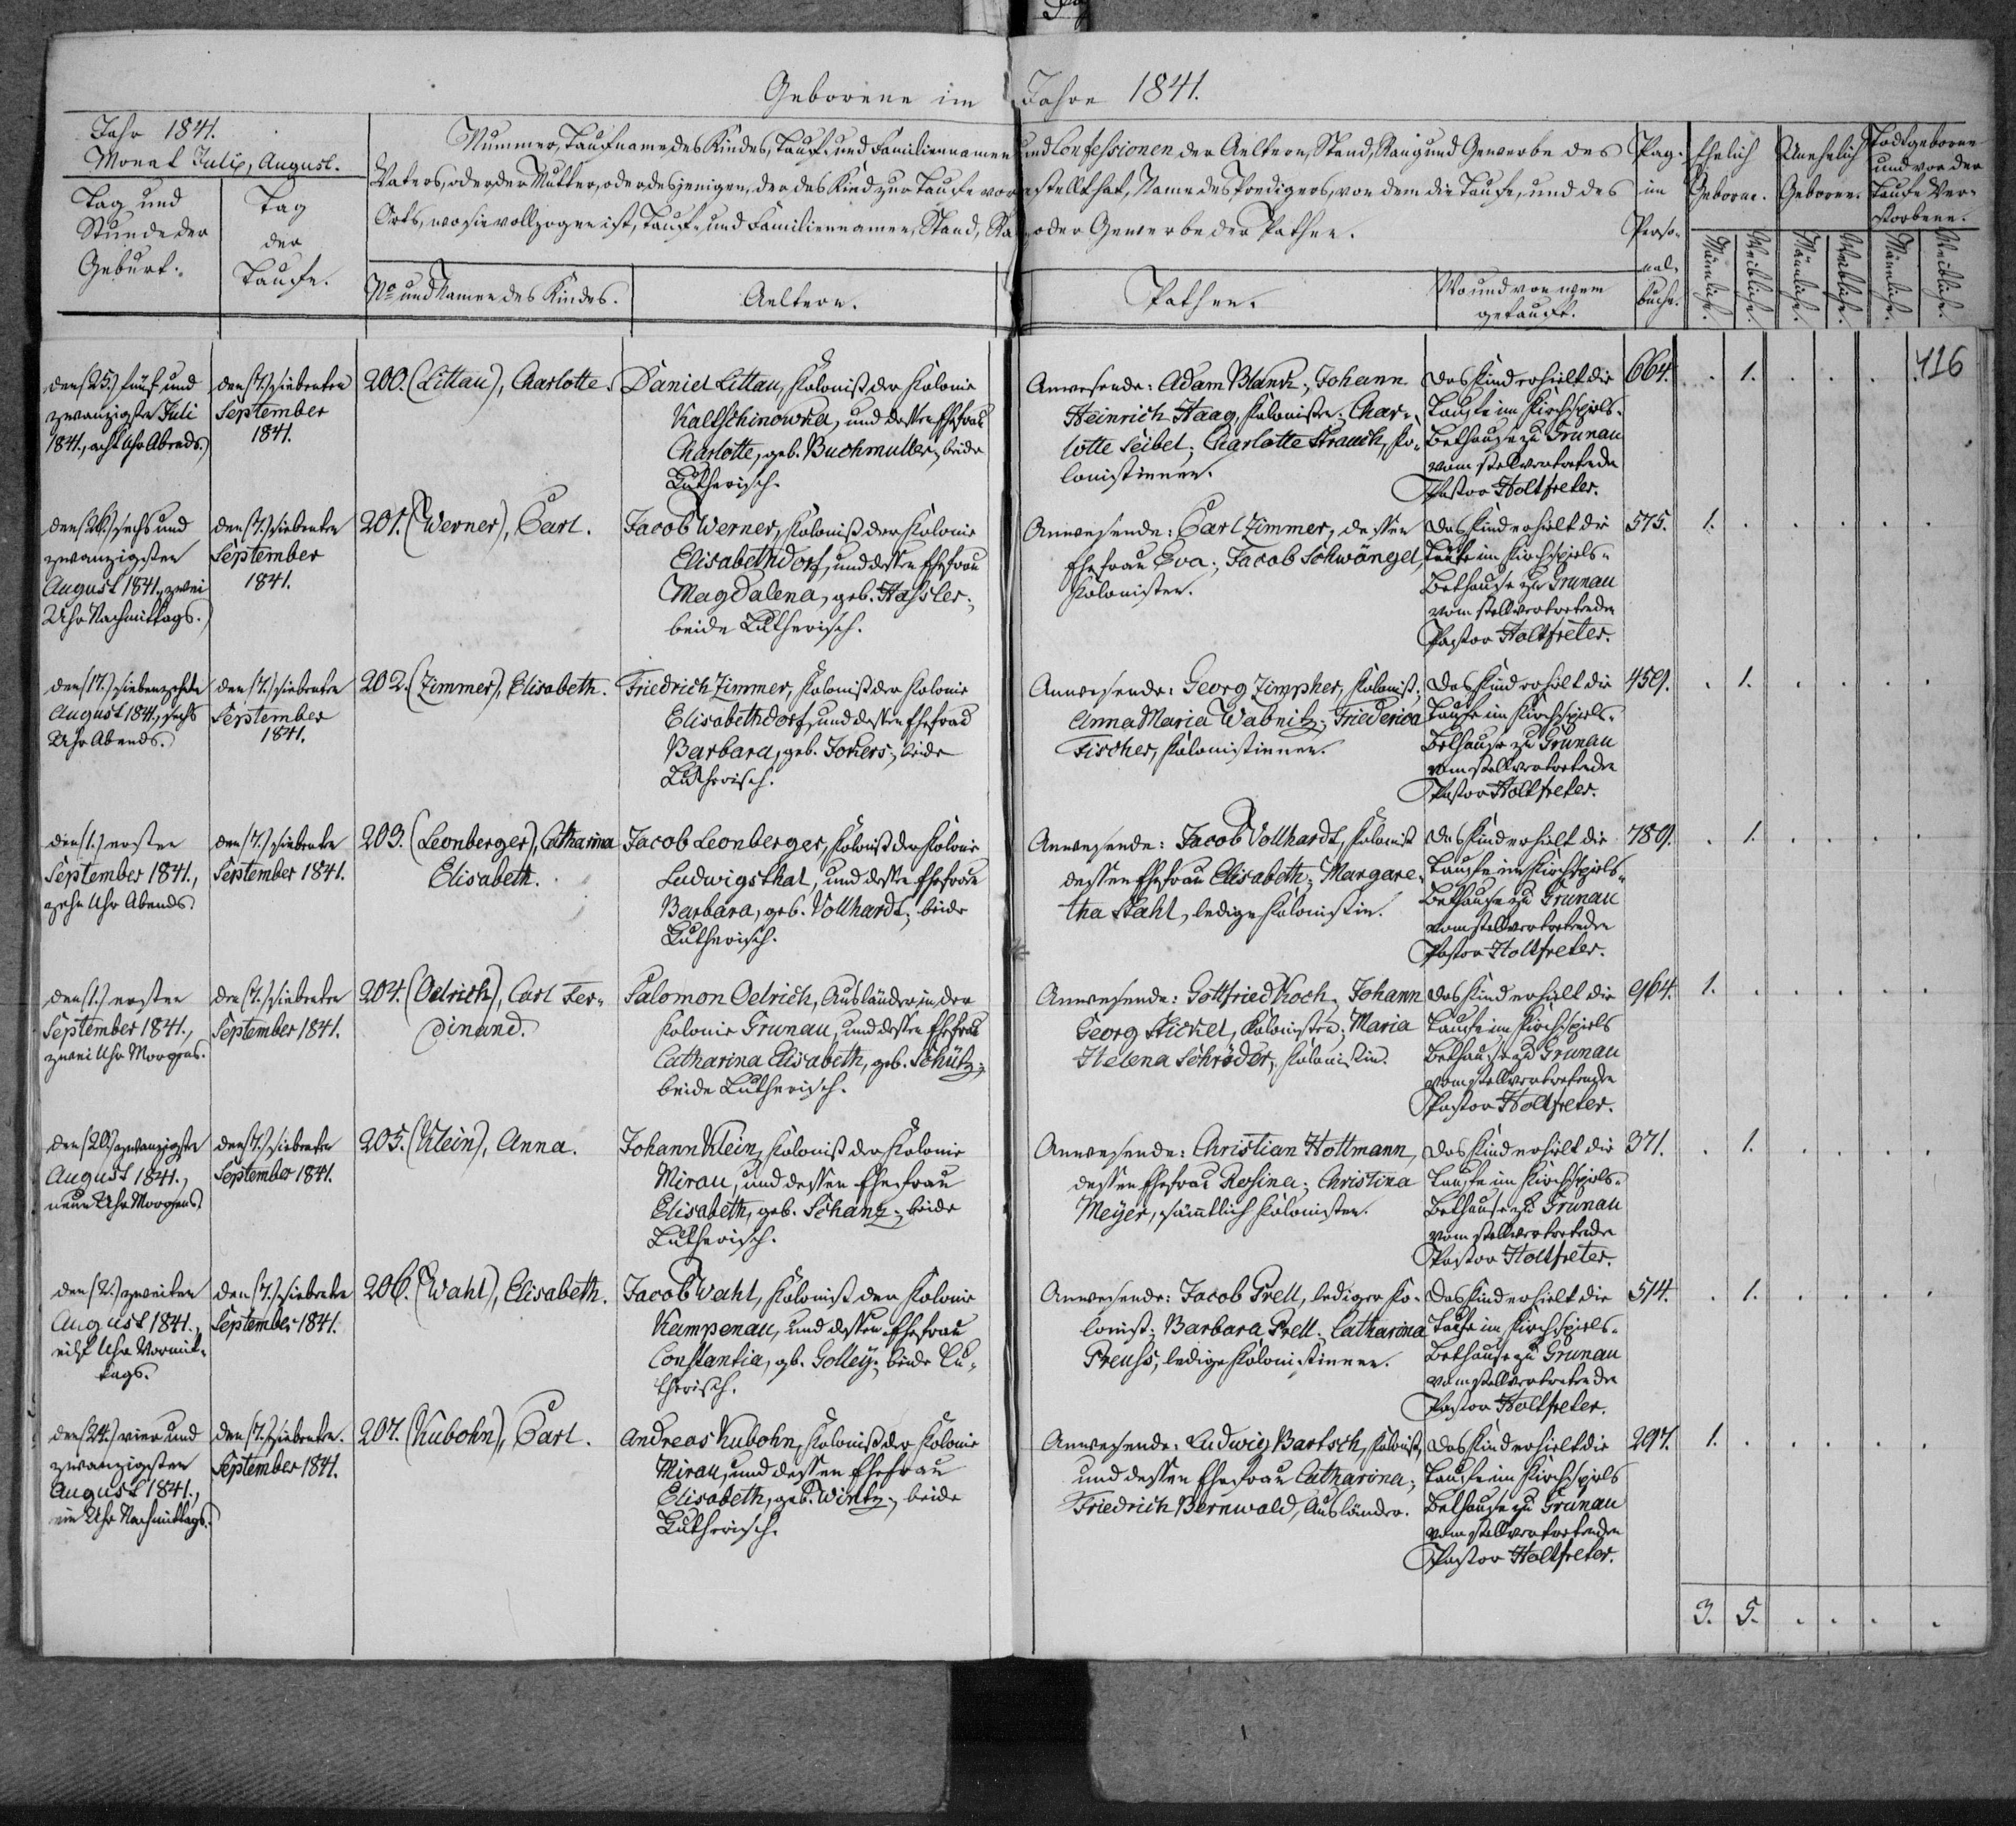 Geborene im Jahre 1841.
Jahr 1841.
Monat July, August.
Tag und
Stunde der
Geburt.
Tag
der
Taufe.
Nummer, Taufname des Kindes, Tauf- und Familiennamen und Confessionen der Aeltern, Stand, Rang und Gewerbe des
Vaters, oder der Mutter, oder desjenigen, der das Kind zur Taufe vorgestellt hat, Name des Predigers, von dem die Taufe, und des
Orts, wo sie vollzogen ist, Tauf- und Familiennamen, Stand, Rang oder Gewerbe der Pathen.
No und Namen des Kindes.
Aeltern.
Pathen.
Wo und von wem
getauft.
Pag.
im
Perso-
nal-
buche.
Ehelich
Geborne.
Unehelich
Geborne.
Todtgeborne
und vor der
Taufe Ver-
storbene.
Männliche.
Weibliche.
Männliche.
Weibliche.
Männliche.
Weibliche.
416
den (25.) fünf und
zwanzigsten Juli
1841., acht Uhr Abends.
den (7.) siebenten
September
1841.
200. (Littau), Charlotte.
Daniel Littau, Kolonist der Kolonie
Kaltschinowka, und dessen Ehefrau
Charlotte, geb. Buchmuller, beide
Lutherisch.
Anwesende: Adam Blank; Johann
Heinrich Haag, Kolonisten; Char-
lotte Seibel; Charlotte Strauch, Ko-
lonistinnen.
Das Kind erhielt die
Taufe im Kirchspiels-
Bethause zu Grunau
vom stellvertretenden
Pastor Holtfreter.
664. . 1. . . . .
den (26.) sechs und
zwanzigsten
August 1841., zwei
Uhr Nachmittags.
den (7.) siebenten
September
1841.
201. (Werner), Carl.
Jacob Werner, Kolonist der Kolonie
Elisabethdorf, und dessen Ehefrau
Magdalena, geb. Hassler;
beide Lutherisch.
Anwesende: Carl Zimmer, dessen
Ehefrau Eva; Jacob Schwängel,
Kolonisten.
Das Kind erhielt die
Taufe im Kirchspiels-
Bethause zu Grunau
vom stellvertretenden
Pastor Holtfreter.
575. 1. . . . . .
den (17.) siebenzehnten
August 1841., sechs
Uhr Abends.
den (7.) siebenten
September
1841.
202. (Zimmer), Elisabeth.
Friedrich Zimmer, Kolonist der Kolonie
Elisabethdorf, und dessen Ehefrau
Barbara, geb. Jokers; beide
Lutherisch.
Anwesende: Georg Zimpher, Kolonist;
Anna Maria Wabnitz; Friederica
Fischer, Kolonistinnen.
Das Kind erhielt die
Taufe im Kirchspiels-
Bethause zu Grunau
vom stellvertretenden
Pastor Holtfreter.
459. . 1. . . . .
den (1.) ersten
September 1841.,
zehn Uhr Abends.
den (7.) siebenten
September 1841.
203. (Leonberger), Catharina
Elisabeth.
Jacob Leonberger, Kolonist der Kolonie
Ludwigsthal, und dessen Ehefrau
Barbara, geb. Vollhardt; beide
Lutherisch.
Anwesende: Jacob Vollhardt, Kolonist
dessen Ehefrau Elisabeth; Margare-
tha Stahl, ledige Kolonistin.
Das Kind erhielt die
Taufe im Kirchspiels-
Bethause zu Grunau
vom stellvertretenden
Pastor Holtfreter.
789. . 1. . . . .
den (1.) ersten
September 1841.,
zwei Uhr Morgens.
den (7.) siebenten
September 1841.
204. (Oelrich), Carl Fer-
dinand.
Salomon Oelrich, Ausländer in der
Kolonie Grunau, und dessen Ehefrau
Catharina Elisabeth, geb. Schütz;
beide Lutherisch.
Anwesende: Gottfried Koch; Johann
Georg Stickel, Kolonisten; Maria
Helena Schröder, Kolonistin.
Das Kind erhielt die
Taufe im Kirchspiels
Bethause zu Grunau
vom stellvertretenden
Pastor Holtfreter.
964. 1. . . . . .
den (20.) zwanzigsten
August 1841.,
neun Uhr Morgens.
den (7.) siebenten
September 1841.
205. (Klein), Anna.
Johann Klein, Kolonist der Kolonie
Mirau, und dessen Ehefrau
Elisabeth, geb. Schanz; beide
Lutherisch.
Anwesende: Christian Hottmann,
dessen Ehefrau Rosina; Christina
Meyer, sämtlich Kolonisten.
Das Kind erhielt die
Taufe im Kirchspiels-
Bethause zu Grunau
vom stellvertretenden
Pastor Holtfreter.
371. . 1. . . . .
den (2.) zweiten
August 1841.,
eilf Uhr Vormit-
tags.
den (7.) siebenten
September 1841.
206. (Wahl), Elisabeth.
Jacob Wahl, Kolonist der Kolonie
Kampenau, und dessen Ehefrau
Constantia, geb. Golley; beide Lu-
therisch.
Anwesende: Jacob Prell, lediger Ko-
lonist; Barbara Prell; Catharina
Preuss, ledige Kolonistinnen.
Das Kind erhielt die
Taufe im Kirchspiels-
Bethause zu Grunau
vom stellvertretenden
Pastor Holtfreter.
514. . 1. . . . .
den (24.) vier und
zwanzigsten
August 1841.,
ein Uhr Nachmittags.
den (7.) siebenten
September 1841.
207. (Kubohn), Carl.
Andreas Kubohn, Kolonist der Kolonie
Mirau, und dessen Ehefrau
Elisabeth, geb. Wintz; beide
Lutherisch.
Anwesende: Ludwig Bartsch, Kolonist,
und dessen Ehefrau Catharina;
Friedrich Bernwald, Ausländer.
Das Kind erhielt die
Taufe im Kirchspiels
Bethause zu Grunau
vom stellvertretenden
Pastor Holtfreter.
297. 1. . . . . .
3. 5. . . . .